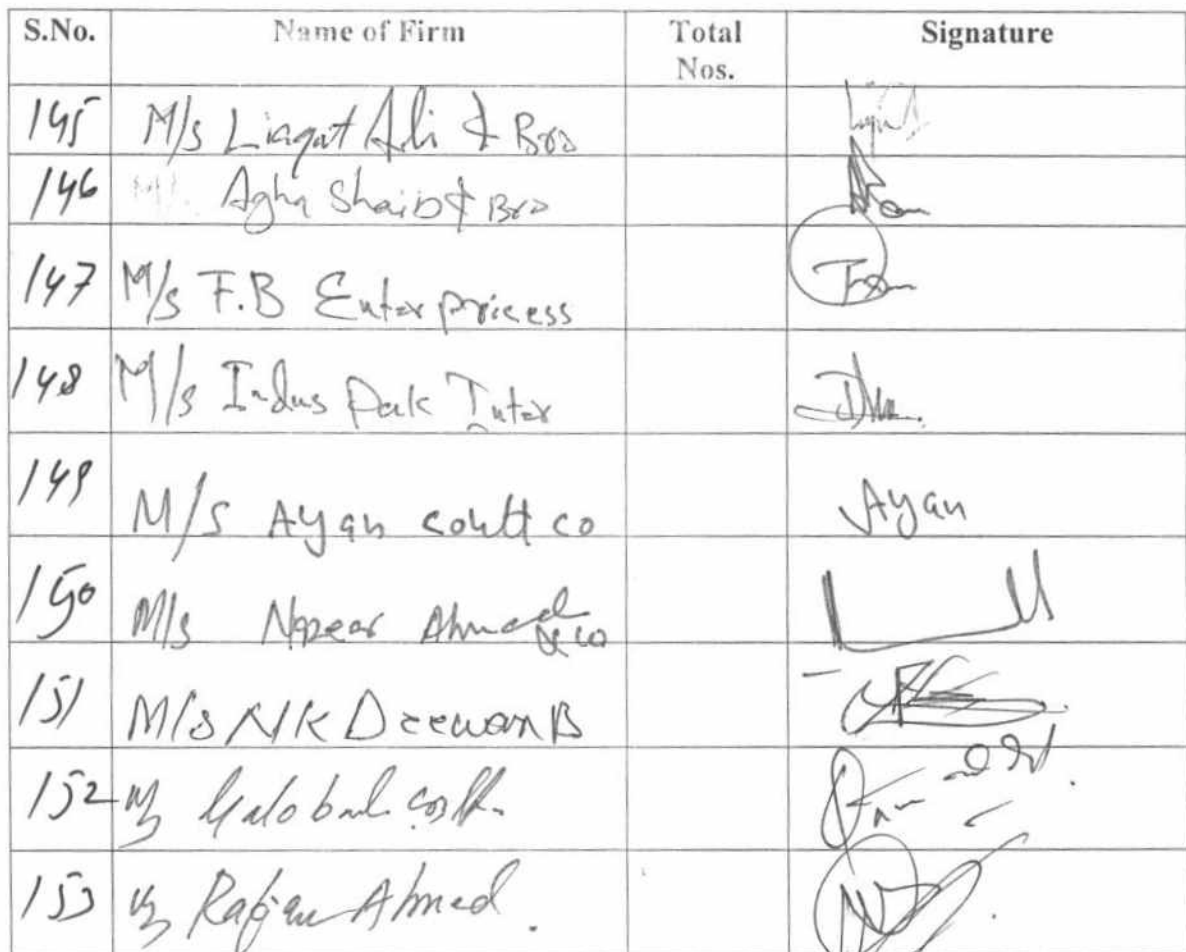 S.No. Name of Firm Total Nos. Signature
145 M/s Liaqat Ali & Bro
146 Agha Shaib & Bro
147 M/s F.B Enterpricess
148 M/s Indus Pak Inter
149 M/s Ayan contt co Ayan
150 M/s Nazeer Ahmed & co
151 M/s N K Deewan B
152 M/s
153 M/s Ahmed.